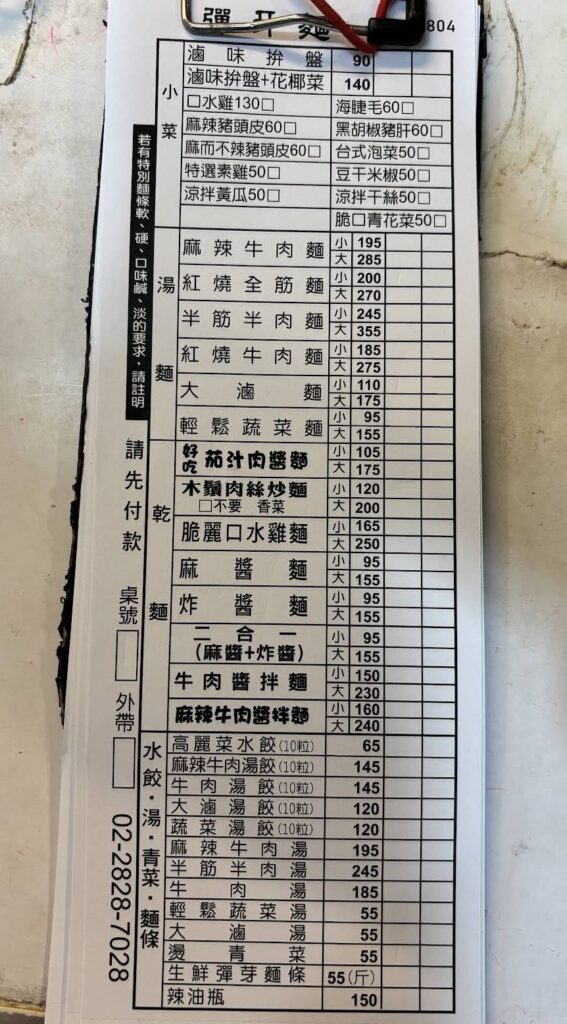 804
小菜
滷味拚盤 90
滷味拚盤+花椰菜 140
口水雞130□ 海睫毛60□
麻辣豬頭皮60□ 黑胡椒豬肝60□
麻而不辣豬頭皮60□ 台式泡菜50□
特選素雞50□ 豆干米椒50□
涼拌黃瓜50□ 涼拌干絲50□
脆口青花菜50□
湯麵
麻辣牛肉麵 小 195
大 285
紅燒全筋麵 小 200
大 270
半筋半肉麵 小 245
大 355
紅燒牛肉麵 小 185
大 275
大滷麵 小 110
大 175
輕鬆蔬菜麵 小 95
大 155
乾麵
好吃茄汁肉醬麵 小 105
大 175
木鬚肉絲炒麵 小 120
□不要 香菜 大 200
脆麗口水雞麵 小 165
大 250
麻醬麵 小 95
大 155
炸醬麵 小 95
大 155
二合一 小 95
(麻醬+炸醬) 大 155
牛肉醬拌麵 小 150
大 230
麻辣牛肉醬拌麵 小 160
大 240
水餃·湯·青菜·麵條
高麗菜水餃(10粒) 65
麻辣牛肉湯餃(10粒) 145
牛肉湯餃(10粒) 145
大滷湯餃(10粒) 120
蔬菜湯餃(10粒) 120
麻辣牛肉湯 195
半筋半肉湯 245
牛肉湯 185
輕鬆蔬菜湯 55
大滷湯 55
燙青菜 55
生鮮彈芽麵條 55(斤)
辣油瓶 150
若有特別麵條軟、硬、口味鹹、淡的要求,請註明
請先付款 桌號 外帶 02-2828-7028